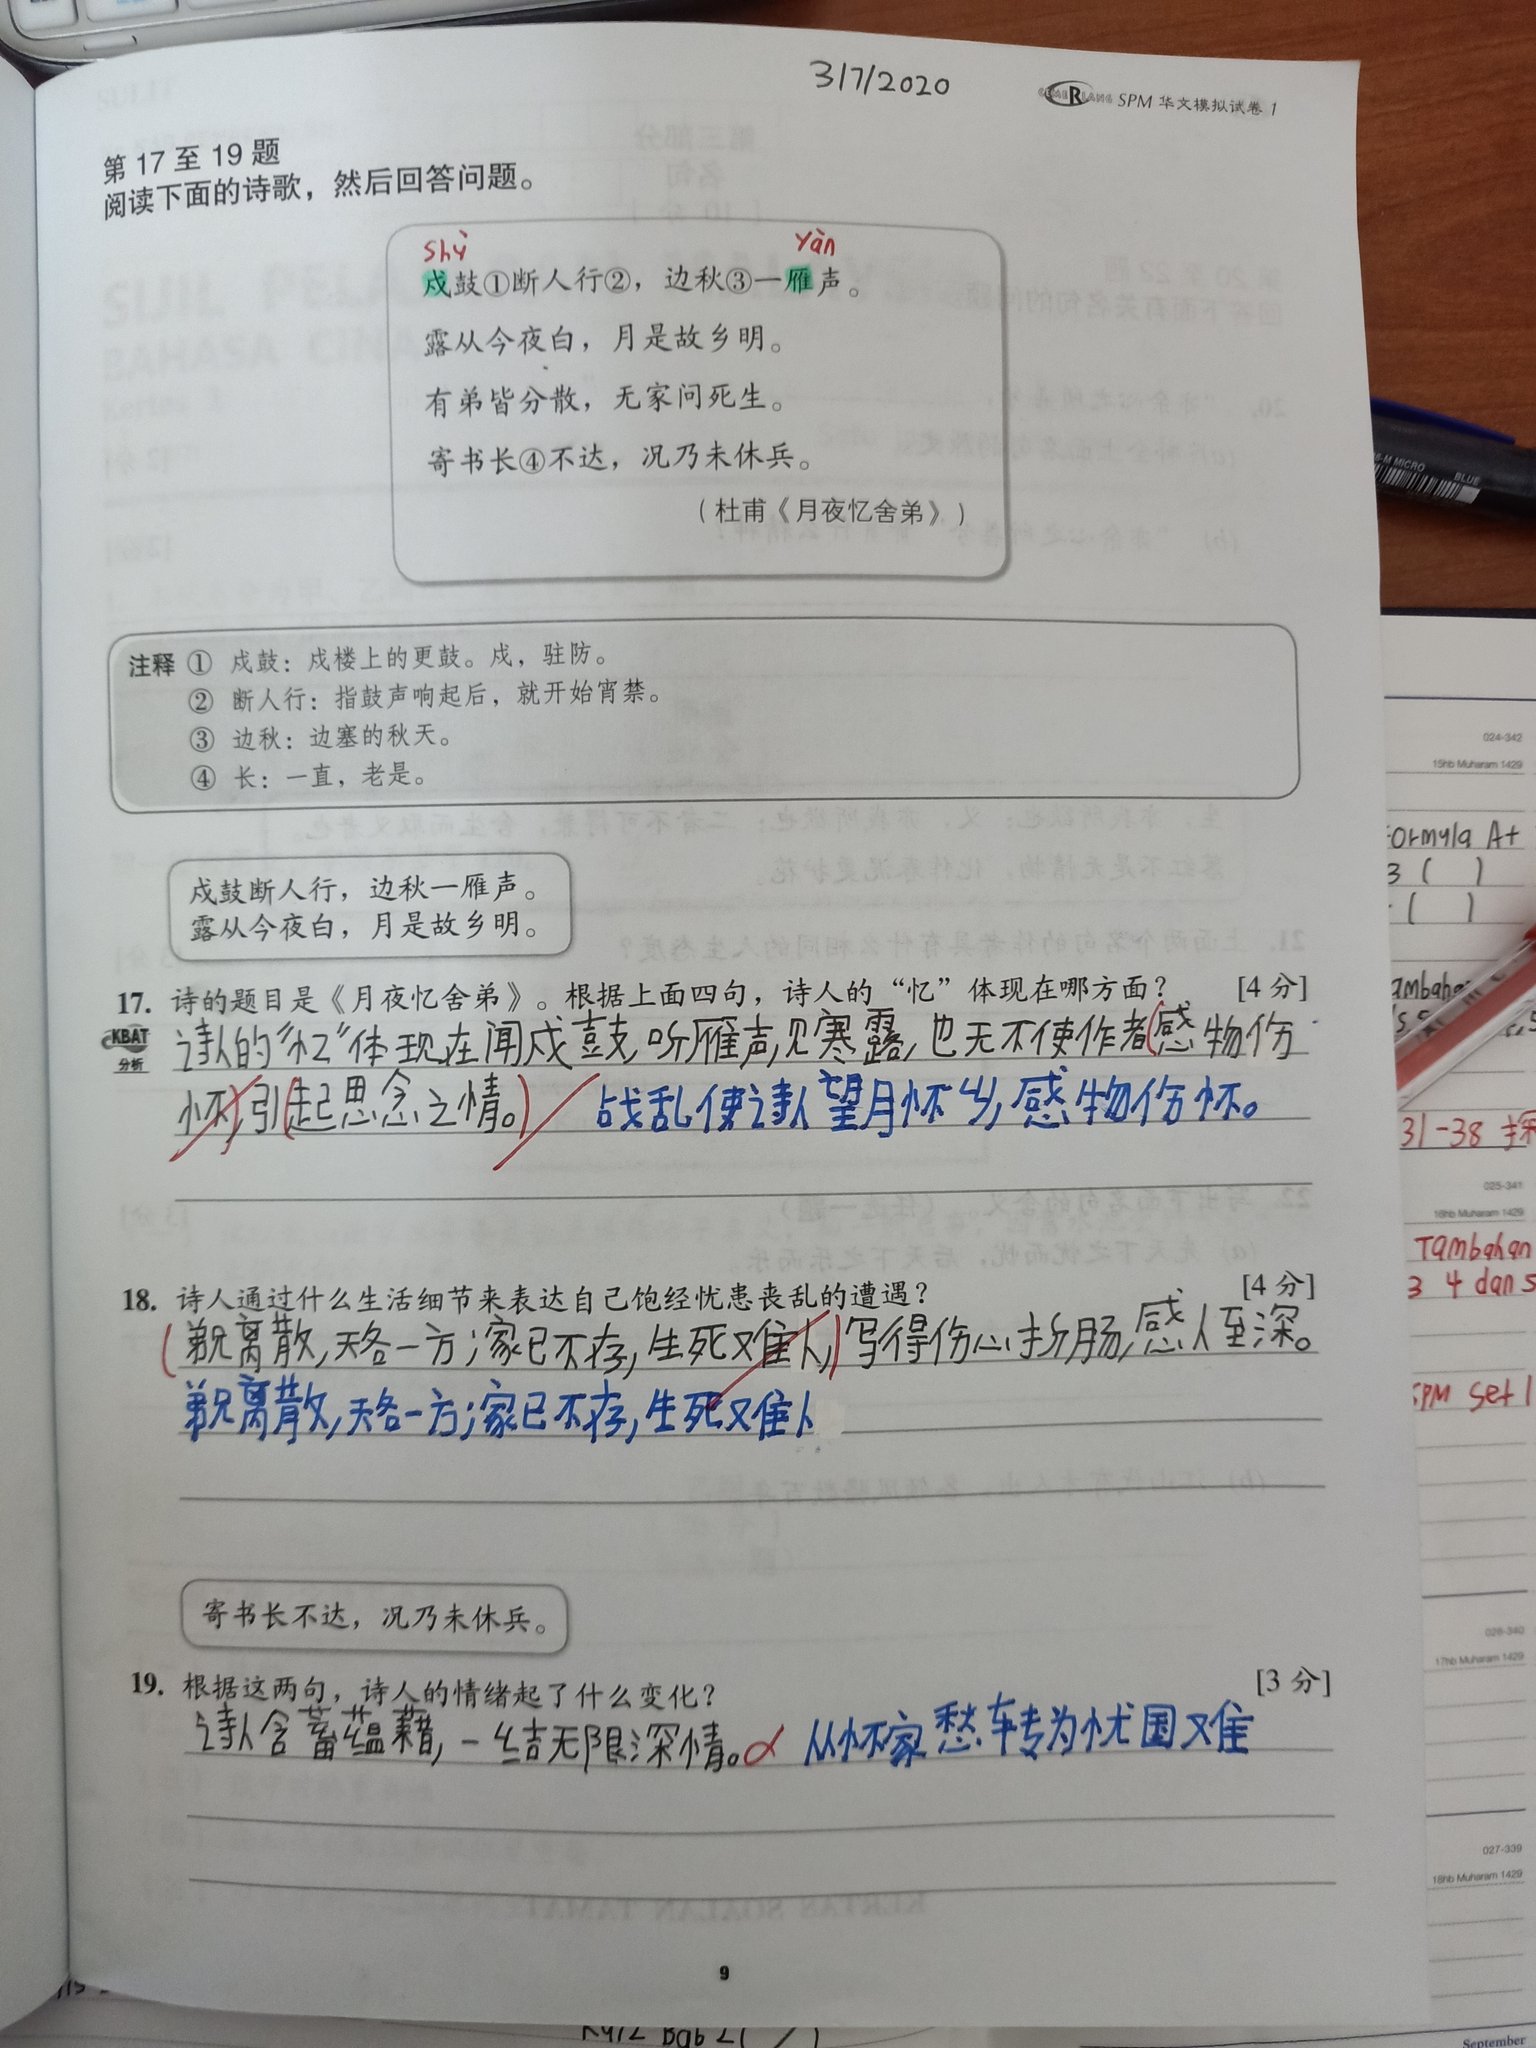 3/7/2020
CEMERLANG SPM 华文模拟试卷 1
第 17 至 19 题
阅读下面的诗歌，然后回答问题。
shù yàn
戍鼓①断人行②，边秋③一雁声。
露从今夜白，月是故乡明。
有弟皆分散，无家问死生。
寄书长④不达，况乃未休兵。
（杜甫《月夜忆舍弟》）
注释 ① 戍鼓：戍楼上的更鼓。戍，驻防。
② 断人行：指鼓声响起后，就开始宵禁。
③ 边秋：边塞的秋天。
④ 长：一直，老是。
戍鼓断人行，边秋一雁声。
露从今夜白，月是故乡明。
17. 诗的题目是《月夜忆舍弟》。根据上面四句，诗人的“忆”体现在哪方面？ [4 分]
KBAT
分析
诗人的“忆”体现在闻戍鼓，听雁声，见寒露，也无不使作者(感物伤
怀)，引(起思念之情。) 战乱使诗人望月怀乡，感物伤怀。
18. 诗人通过什么生活细节来表达自己饱经忧患丧乱的遭遇？ [4 分]
(弟兄离散，天各一方；家已不存，生死难卜，)写得伤心折肠，感人至深。
弟兄离散，天各一方；家已不存，生死难卜
寄书长不达，况乃未休兵。
19. 根据这两句，诗人的情绪起了什么变化？ [3 分]
诗人含蓄蕴藉，一结无限深情。 从怀家愁转为忧国难
9
024-342
15hb Muharam 1429
Formula A+
3 ( )
( )
31-38
025-341
16hb Muharam 1429
Tambahan
3 4 dan 5
SPM set 1
026-340
17hb Muharam 1429
027-339
18hb Muharam 1429
September